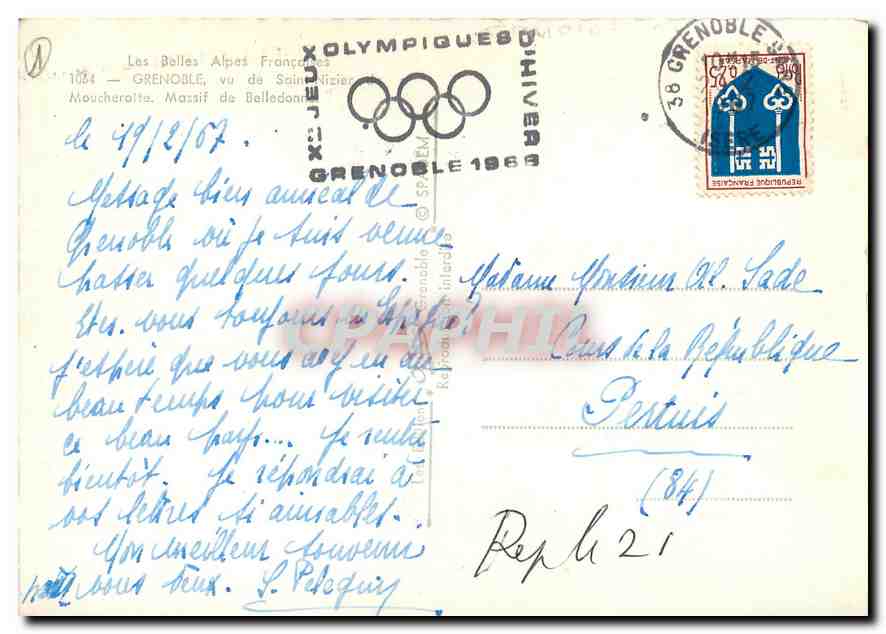 1
Les Belles Alpes Françaises
1064 — GRENOBLE, vu de Saint-Nizier
Moucherotte. Massif de Belledonne
Xes JEUX OLYMPIQUES D'HIVER
GRENOBLE 1968
38 GRENOBLE
ISERE
0,25
REPUBLIQUE FRANÇAISE
le 19/2/67.
Message bien amical de
Grenoble où je suis venue
passer quelques jours.
Etes-vous toujours en
j'espère que vous avez eu du
beau temps pour visiter
ce beau pays... Je rentre
bientôt. Je répondrai à
vos lettres si aimables.
Mon meilleur souvenir
pour vous deux. S. Peleguy
Madame Monsieur Al. Sade
Cours de la République
Pertuis
(84)
Rep le 21
Les Editions Grenoble © SPADEM
Reproduction interdite
CPAPHIL